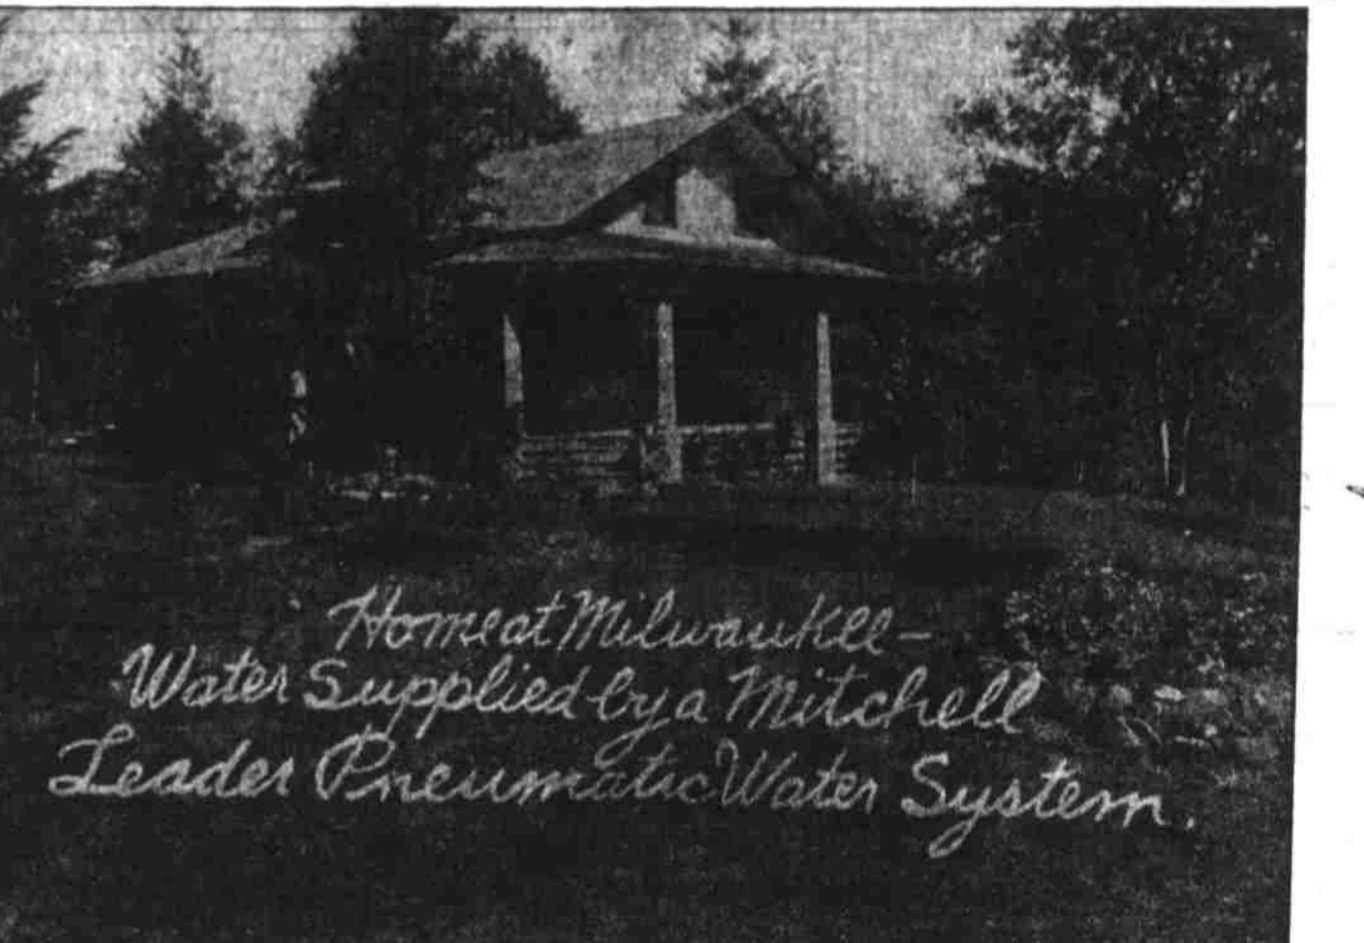 Home at Milwaukee—
Water Supplied by a Mitchell
Leader Pneumatic Water System.